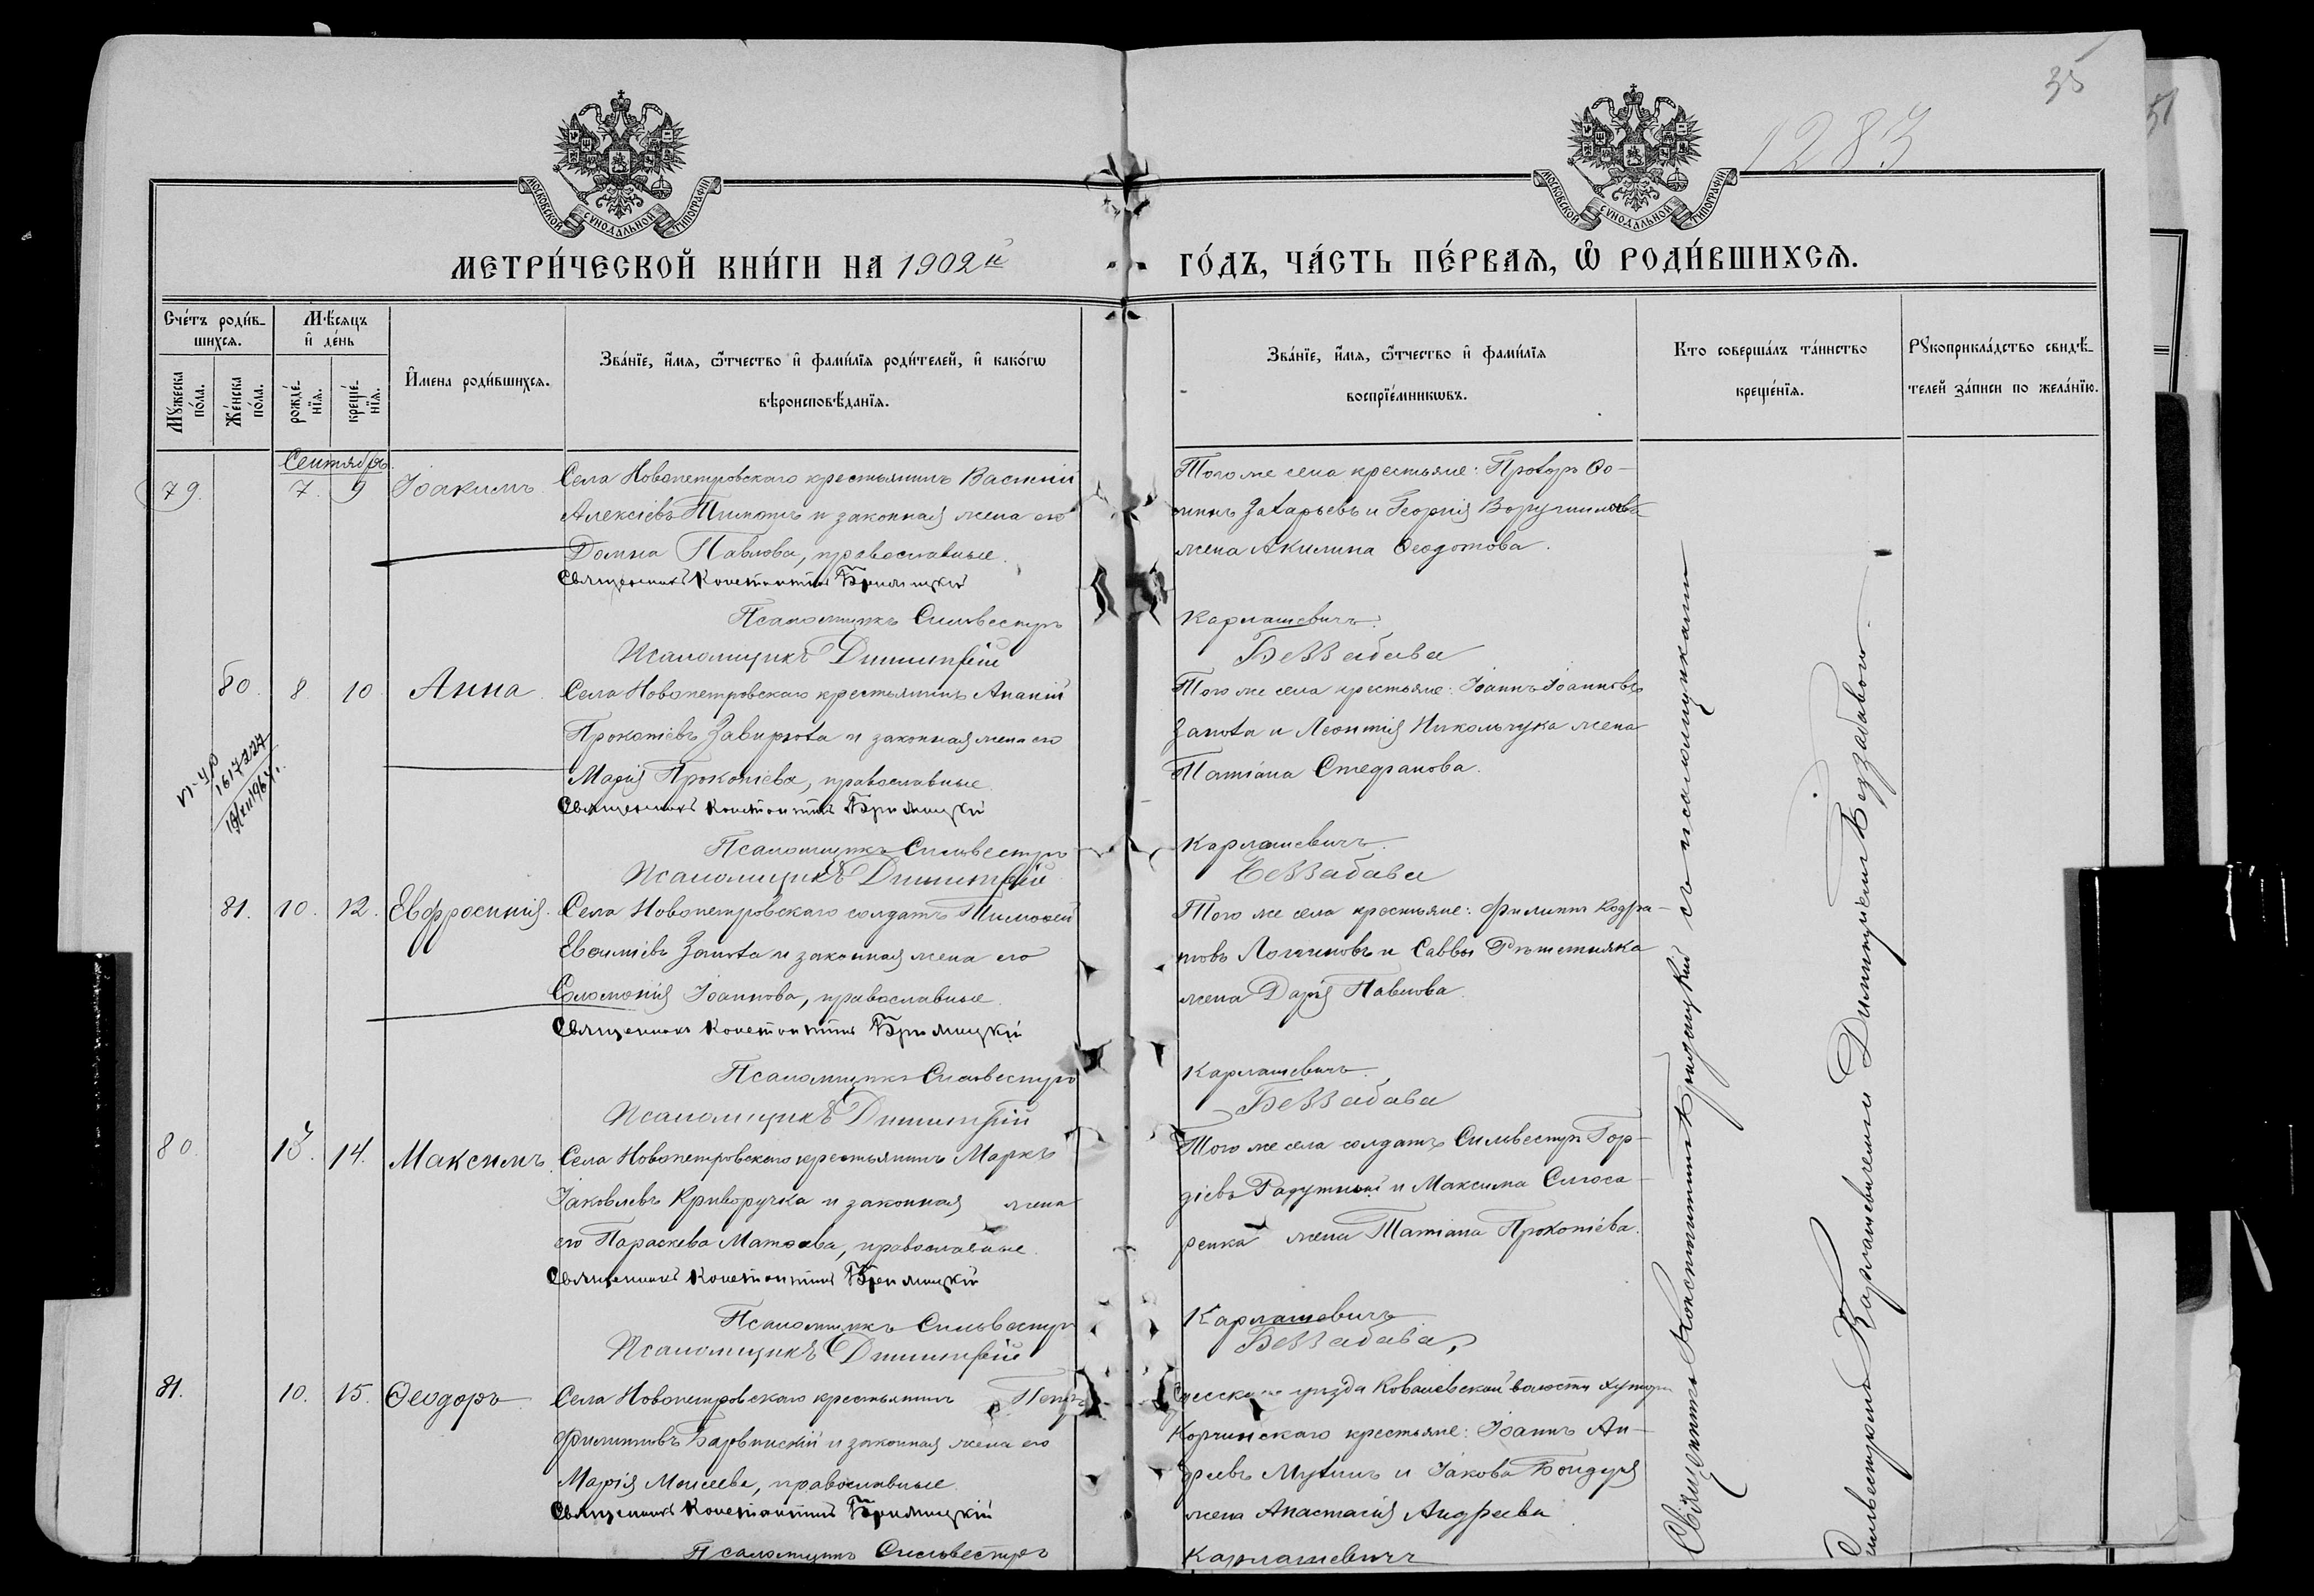 35
1283
МОСКОВСКОЙ СУНОДАЛЬНОЙ ТИПОГРАФІИ
МОСКОВСКОЙ СУНОДАЛЬНОЙ ТИПОГРАФІИ
МЕТРИ́ЧЕСКОЙ КНИ́ГИ НА 1902й ГО́ДЪ, ЧА́СТЬ ПЕ́РВАЯ, Ѡ҆ РОДИ́ВШИХСѦ.
Сче́тъ роди́вшихсѧ.
Мꙋ́жеска по́ла.
Же́нска по́ла.
Мѣ́сѧцъ и҆ де́нь
рожде́нїѧ.
креще́нїѧ.
И҆мена роди́вшихсѧ.
Зва́нїе, и҆́мѧ, ѻ҆́тчество и҆ фами́лїѧ роди́телей, и҆ како́гѡ
вѣроисповѣ́данїѧ.
Зва́нїе, и҆́мѧ, ѻ҆́тчество и҆ фами́лїѧ
воспрїе́мникѡвъ.
Кто соверша́лъ та́инство
креще́нїѧ.
Рꙋкоприкла́дство свидѣ́-
телей за́писи по жела́нїю.
Сентябрь.
79. 7. 9 Іоакимъ
Села Новопетровскаго крестьянинъ Василій
Алексіевъ и законная жена его
Домна Павлова, православные.
Священникъ Константинъ
Псаломщикъ Сильвестръ
Псаломщикъ Димитрій
Того же села крестьяне: Ѳо-
минъ Захарьевъ и Георгія
жена Акилина Ѳеодотова.
Карлашевичъ.
Беззабава
80. 8. 10 Анна
Села Новопетровскаго крестьянинъ Ананій
Прокопіевъ Завирюха и законная жена его
Марія Прокопіева, православные.
Священникъ Константинъ
Псаломщикъ Сильвестръ
Псаломщикъ Димитрій
Того же села крестьяне: Іоаннъ Іоанновъ
и Леонтія Никольчука жена
Татіана Стефанова.
Карлашевичъ.
Беззабава
1617227
81. 10. 12. Евфросинія.
Села Новопетровскаго солдатъ Тимоѳей
и законная жена его
Соломонія Іоаннова, православные.
Священникъ Константинъ
Псаломщикъ Сильвестръ
Псаломщикъ Димитрій
Того же села крестьяне: Филиппъ Кодра-
товъ Логиновъ и Саввы Рѣшетняка
жена Дарія Павлова.
Карлашевичъ.
Беззабава
80. 13. 14. Максимъ.
Села Новопетровскаго крестьянинъ Маркъ
Іаковлевъ Криворучка и законная жена
его Параскева Матѳеева, православные.
Священникъ Константинъ
Псаломщикъ Сильвестръ
Псаломщикъ Димитрій
Того же села солдатъ Сильвестръ Гор-
діевъ и Максима Слюса-
ренка жена Татіана Прокопіева.
Карлашевичъ
Беззабава
81. 10. 15. Ѳеодоръ
Села Новопетровскаго крестьянинъ Петръ
Филипповъ Барвинскій и законная жена его
Марія Моисеева, православные.
Священникъ Константинъ
Псаломщикъ Сильвестръ
Одесскаго уѣзда Ковалевской волости хутора
Корчинскаго крестьяне: Іоаннъ Ан-
дреевъ и Іакова Бондаря
жена Анастасія Андреева
Карлашевичъ
Священникъ Константинъ съ псаломщиками
Сильвестромъ Карлашевичемъ и Димитріемъ Беззабавою.